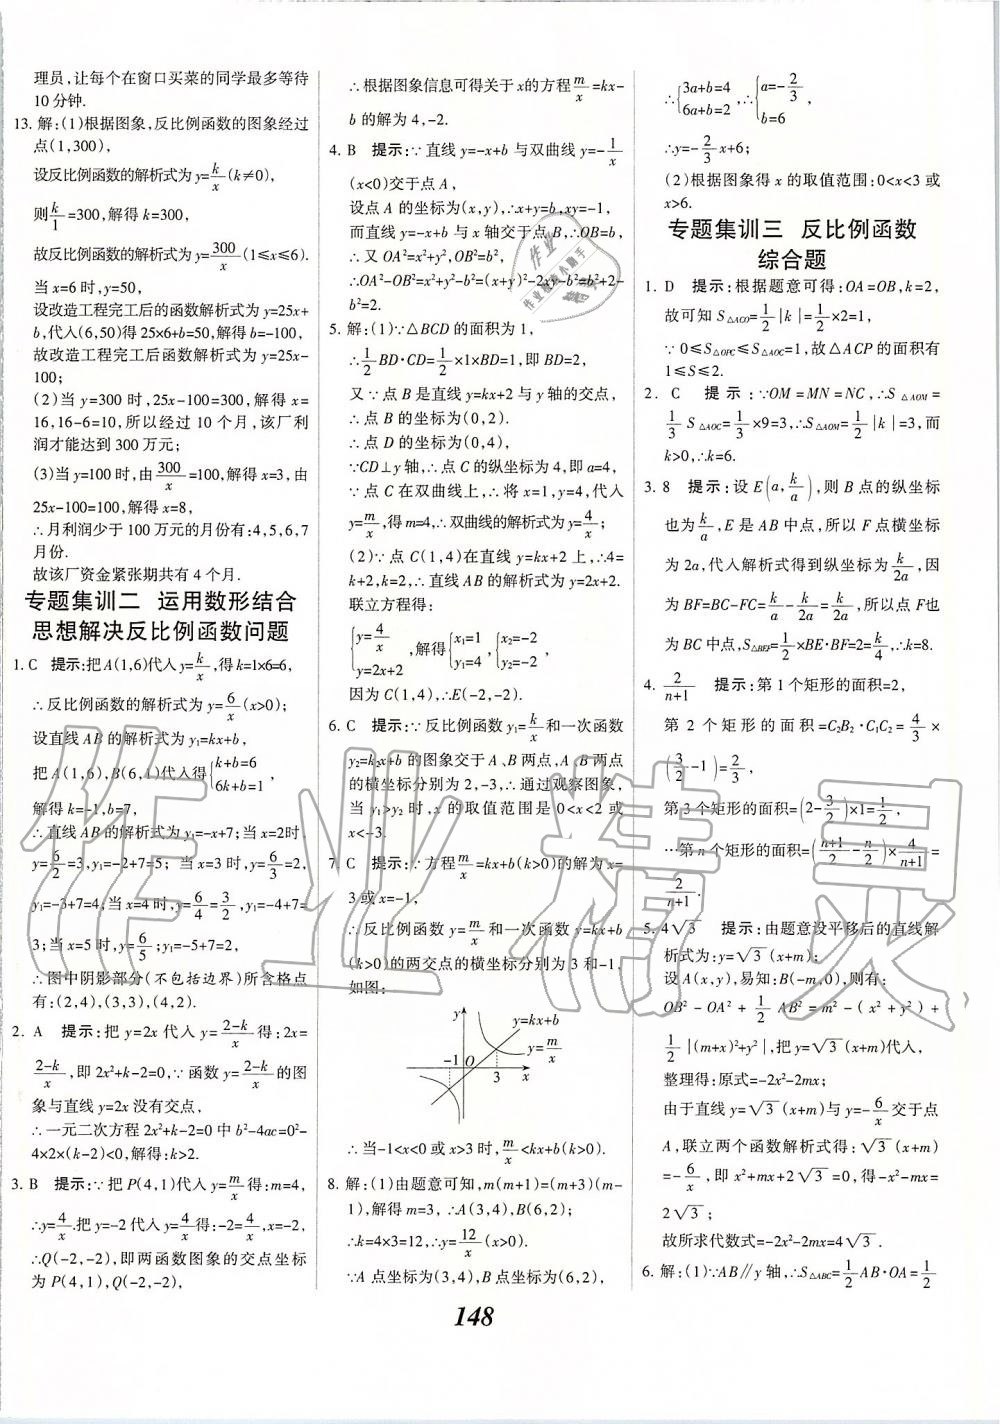 理员,让每个在窗口买菜的同学最多等待
10分钟.
13. 解:(1)根据图象,反比例函数的图象经过
点(1,300),
设反比例函数的解析式为y=k/x(k≠0),
则k/1=300,解得k=300,
故反比例函数的解析式为y=300/x(1≤x≤6).
当x=6时,y=50,
设改造工程完工后的函数解析式为y=25x+
b,代入(6,50)得25×6+b=50,解得b=-100,
故改造工程完工后函数解析式为y=25x-
100;
(2)当y=300时,25x-100=300,解得x=
16,16-6=10,所以经过10个月,该厂利
润才能达到300万元;
(3)当y=100时,由300/x=100,解得x=3,由
25x-100=100,解得x=8,
∴月利润少于100万元的月份有:4,5,6,7
月份.
故该厂资金紧张期共有4个月.
专题集训二 运用数形结合
思想解决反比例函数问题
1. C 提示:把A(1,6)代入y=k/x,得k=1×6=6,
∴反比例函数的解析式为y=6/x(x>0);
设直线AB的解析式为y₁=kx+b,
把A(1,6),B(6,1)代入得{k+b=6 6k+b=1
解得k=-1,b=7,
∴直线AB的解析式为y₁=-x+7;当x=2时,
y=6/2=3,y₁=-2+7=5;当x=3时,y=6/3=2,
y₁=-3+7=4,当x=4时,y=6/4=3/2,y₁=-4+7=
3;当x=5时,y=6/5;y₁=-5+7=2,
∴图中阴影部分(不包括边界)所含格点
有:(2,4),(3,3),(4,2).
2. A 提示:把y=2x代入y=2-k/x得:2x=
2-k/x,即2x²+k-2=0,∵函数y=2-k/x的图
象与直线y=2x没有交点,
∴一元二次方程2x²+k-2=0中b²-4ac=0²-
4×2×(k-2)<0,解得:k>2.
3. B 提示:∵把P(4,1)代入y=m/x得:m=4,
∴y=4/x.把y=-2代入y=4/x得:-2=4/x,x=-2,
∴Q(-2,-2),即两函数图象的交点坐标
为P(4,1),Q(-2,-2),
∴根据图象信息可得关于x的方程m/x=kx-
b的解为4,-2.
4. B 提示:∵直线y=-x+b与双曲线y=-1/x
(x<0)交于点A,
设点A的坐标为(x,y),∴x+y=b,xy=-1,
而直线y=-x+b与x轴交于点B,∴OB=b,
∴又OA²=x²+y²,OB²=b²,
∴OA²-OB²=x²+y²-b²=(x+y)²-2xy-b²=b²+2-
b²=2.
5. 解:(1)∵△BCD的面积为1,
∴1/2BD·CD=1/2×1×BD=1,即BD=2,
又∵点B是直线y=kx+2与y轴的交点,
∴点B的坐标为(0,2).
∴点D的坐标为(0,4),
∵CD⊥y轴,∴点C的纵坐标为4,即a=4,
∵点C在双曲线上,∴将x=1,y=4,代入
y=m/x,得m=4,∴双曲线的解析式为y=4/x;
(2)∵点C(1,4)在直线y=kx+2上,∴4=
k+2,k=2,∴直线AB的解析式为y=2x+2.
联立方程得:
{y=4/x y=2x+2,解得{x₁=1 y₁=4,{x₂=-2 y₂=-2
因为C(1,4),∴E(-2,-2).
6. C 提示:∵反比例函数y₁=k/x和一次函数
y₂=k₂x+b的图象交于A、B两点,A、B两点
的横坐标分别为2,-3,∴通过观察图象,
当y₁>y₂时,x的取值范围是0<x<2或
x<-3.
7. C 提示:∵方程m/x=kx+b(k>0)的解为x=
3或x=-1,
∴反比例函数y=m/x和一次函数y=kx+b
(k>0)的两交点的横坐标分别为3和-1,
如图:
y y=kx+b
y=m/x
-1 O 3 x
∴当-1<x<0或x>3时,m/x<kx+b.
8. 解:(1)由题意可知,m(m+1)=(m+3)(m-
1),解得m=3,∴A(3,4),B(6,2),
∴k=4×3=12,∴y=12/x(x>0);
∵A点坐标为(3,4),B点坐标为(6,2),
∴{3a+b=4 6a+b=2,∴{a=-2/3 b=6,
∴y=-2/3x+6;
(2)根据图象得x的取值范围:0<x<3或
x>6.
专题集训三 反比例函数
综合题
1. D 提示:根据题意可得:OA=OB,k=2,
故可知S△ACO=1/2|k|=1/2×2=1,
∵0≤S△OPC≤S△AOC=1,故△ACP的面积有
1≤S≤2.
2. C 提示:∵OM=MN=NC,∴S△AOM=
1/3S△AOC=1/3×9=3,∴S△AOM=1/2|k|=3,而
k>0,∴k=6.
3. 8 提示:设E(a,k/a),则B点的纵坐标
也为k/a,E是AB中点,所以F点横坐标
为2a,代入解析式得到纵坐标为k/2a,因
为BF=BC-FC=k/a-k/2a=k/2a,所以点F也
为BC中点,S△BEF=1/2×BE·BF=2=k/4,∴k=8.
4. 2/n+1 提示:第1个矩形的面积=2,
第2个矩形的面积=C₂B₂·C₁C₂=4/3×
(3/2-1)=2/3,
第3个矩形的面积=(2-3/2)×1=1/2,
…第n个矩形的面积=(n+1/2-n/2)×4/n+1=
2/n+1.
5. 4√3 提示:由题意设平移后的直线解
析式为:y=√3x+√3m,
设A(x,y),易知:B(-m,0),则有:
OB²-OA²+1/2AB²=m²-(x²+y²)+
1/2|(m+x)²+y²|,把y=√3(x+m)代入,
整理得:原式=-2x²-2mx;
由于直线y=√3(x+m)与y=-6/x交于点
A,联立两个函数解析式得:√3(x+m)=
-6/x,即x²+mx+2√3=0,得-x²-mx=
2√3;
故所求代数式=-2x²-2mx=4√3.
6. 解:(1)∵AB∥y轴,∴S△ABC=1/2AB·OA=1/2
148
作业精灵